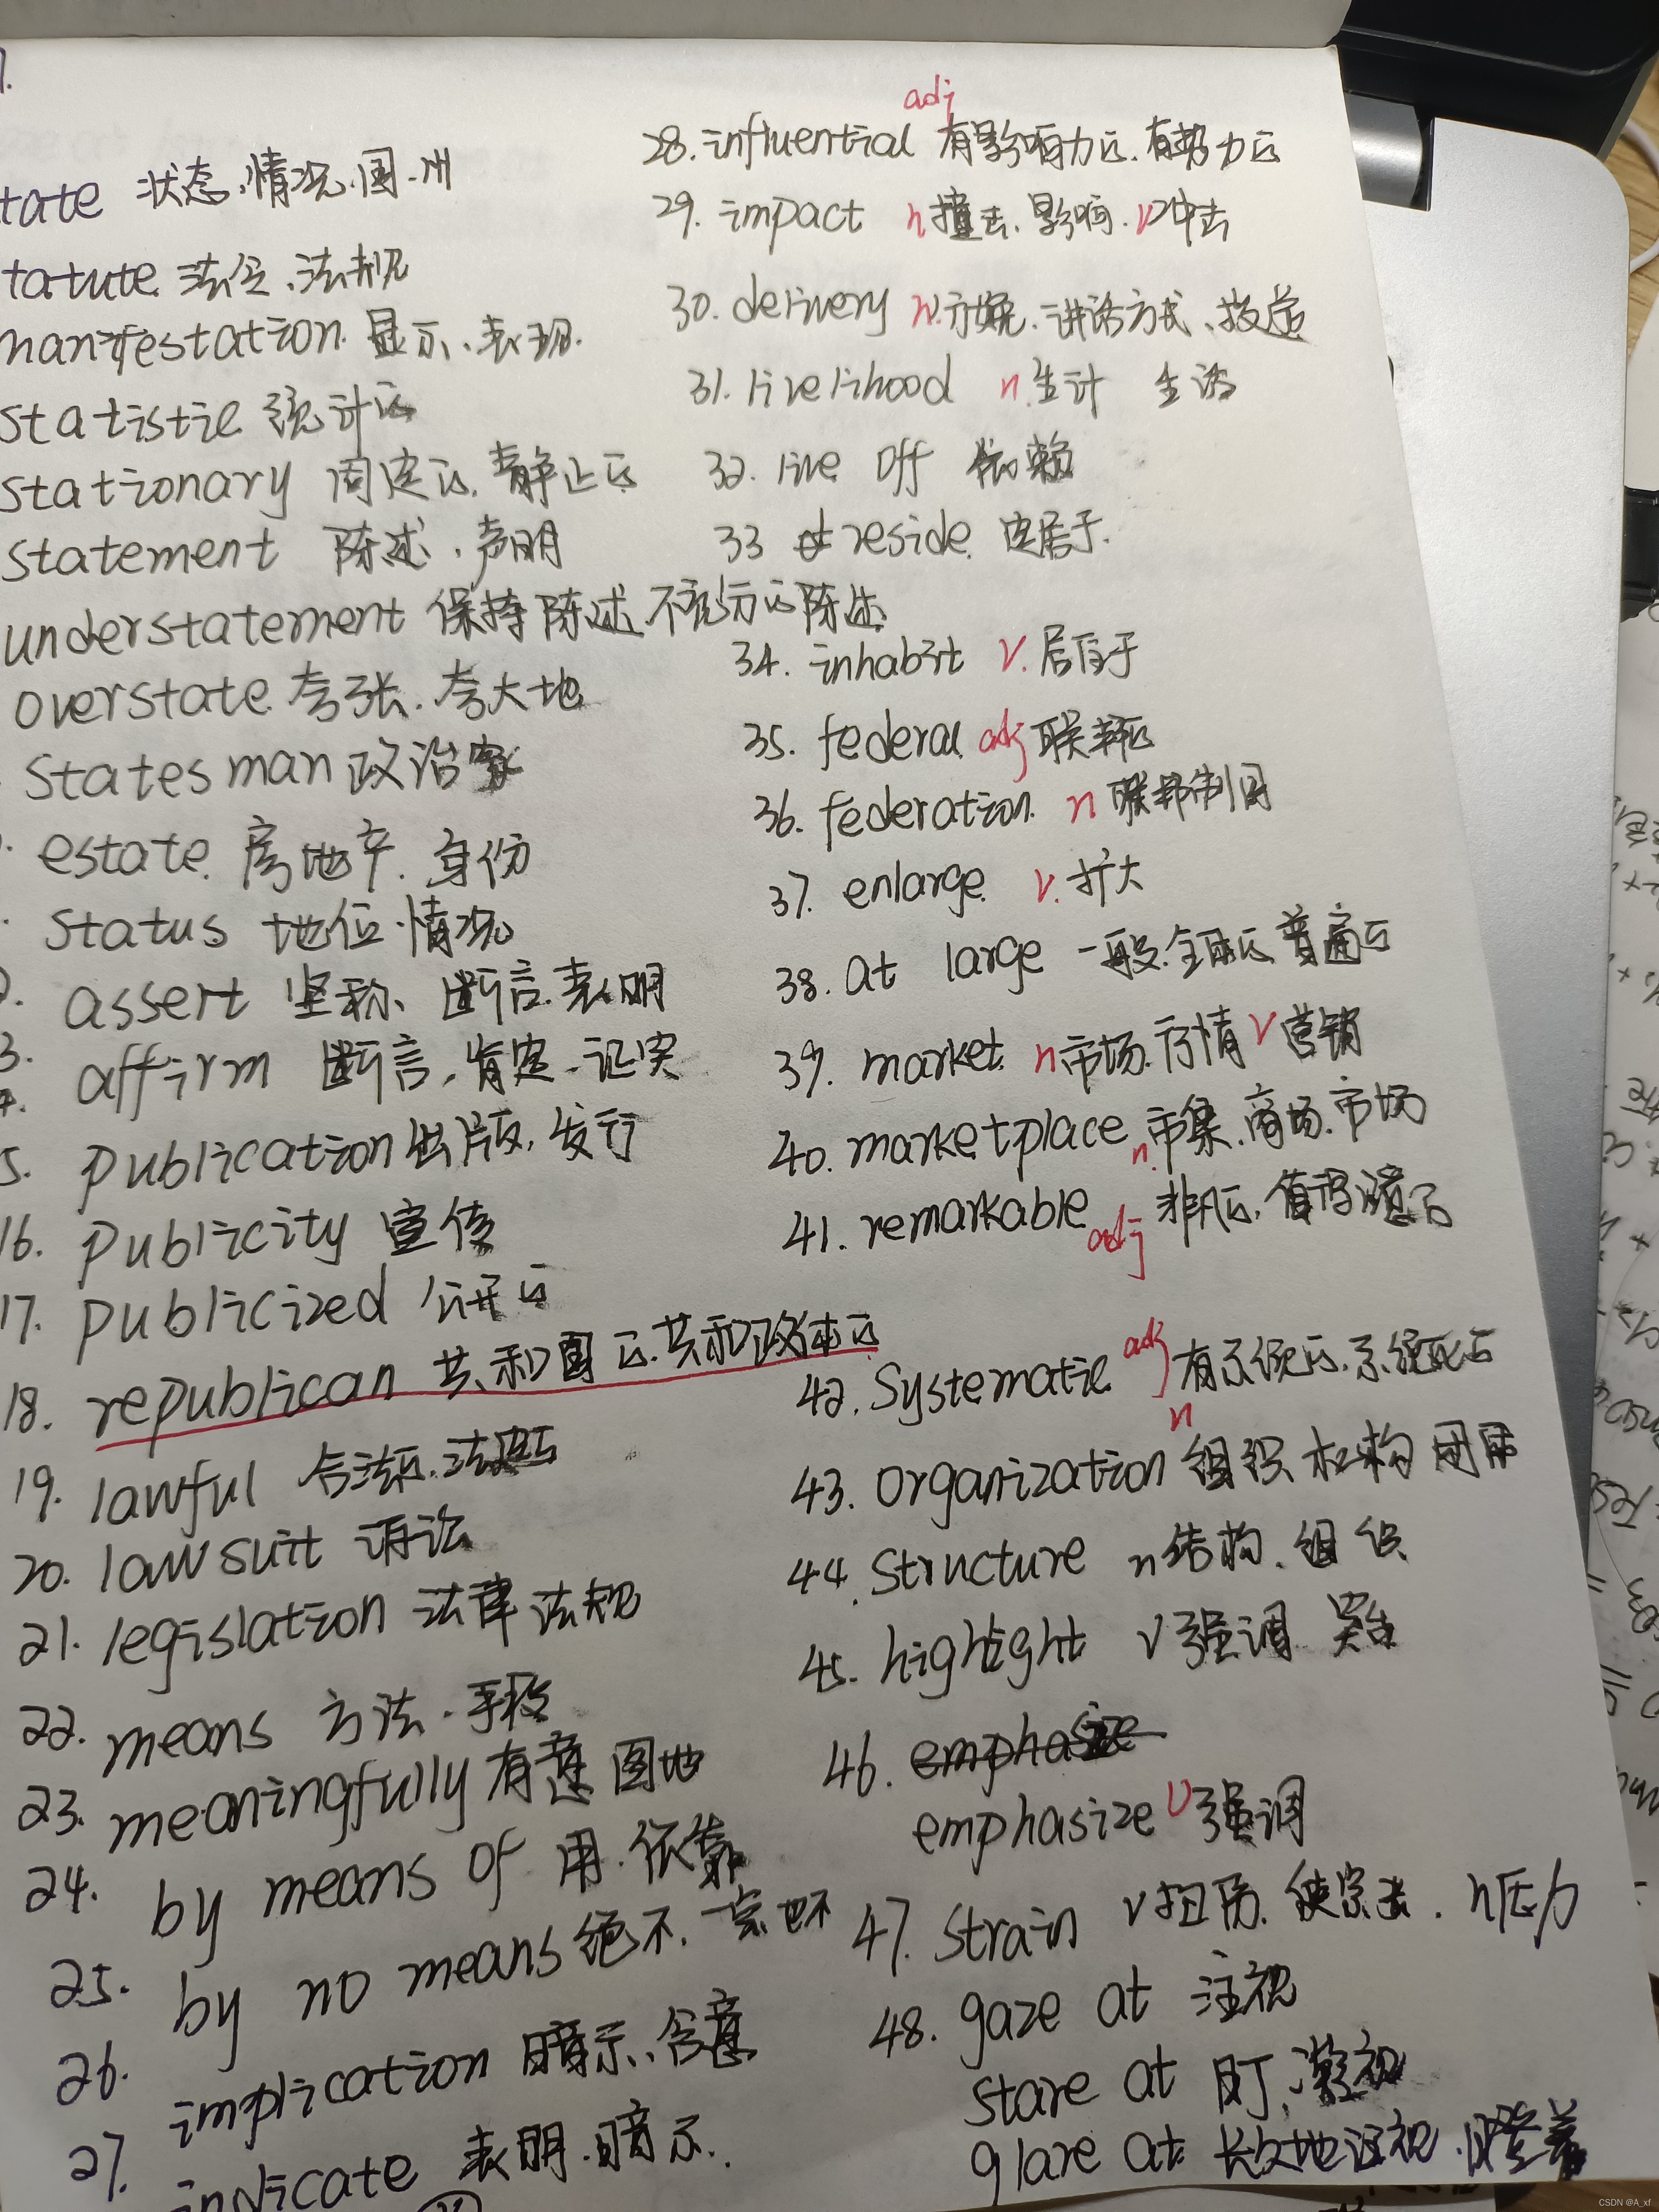 tate 状态、情况、国、州
tatute 法令、法规
manifestation 显示、表现
statistic 统计的
stationary 固定的、静止的
statement 陈述、声明
understatement 保持陈述、不充分的陈述
overstate 夸张、夸大地
statesman 政治家
estate 房地产、身份
status 地位、情况
assert 坚称、断言、表明
3. affirm 断言、肯定、证实
5. publication 出版、发行
16. publicity 宣传
17. publicized 公开的
18. republican 共和国的、共和政体的
19. lawful 合法的、法定的
20. lawsuit 诉讼
21. legislation 法律 法规
22. means 方法、手段
23. meaningfully 有意图地
24. by means of 用、依靠
25. by no means 绝不、一点也不
26. implication 暗示、含意
27. indicate 表明、暗示.
28. influential adj 有影响力的、有势力的
29. impact n 撞击、影响、v 冲击
30. delivery n. 分娩、讲话方式、投递
31. livelihood n. 生计 生活
32. live off 依赖
33 reside 定居于.
34. inhabit v. 居住于
35. federal adj 联邦的
36. federation n 联邦制国
37. enlarge v. 扩大
38. at large 一般、全面的 普通的
39. market n 市场、行情 v 营销
40. marketplace n. 市集、商场、市场
41. remarkable adj 非凡的、值得注意的
42. Systematic adj 有系统的、系统化的
43. Organization n 组织 机构 团体
44. Structure n 结构、组织
45. highlight v 强调 突出
46. emphasize
emphasize v 强调
47. Strain v 扭伤、使紧张、n 压力
48. gaze at 注视
Stare at 盯、凝视
glare at 长久地注视、瞪着
CSDN @A_xf